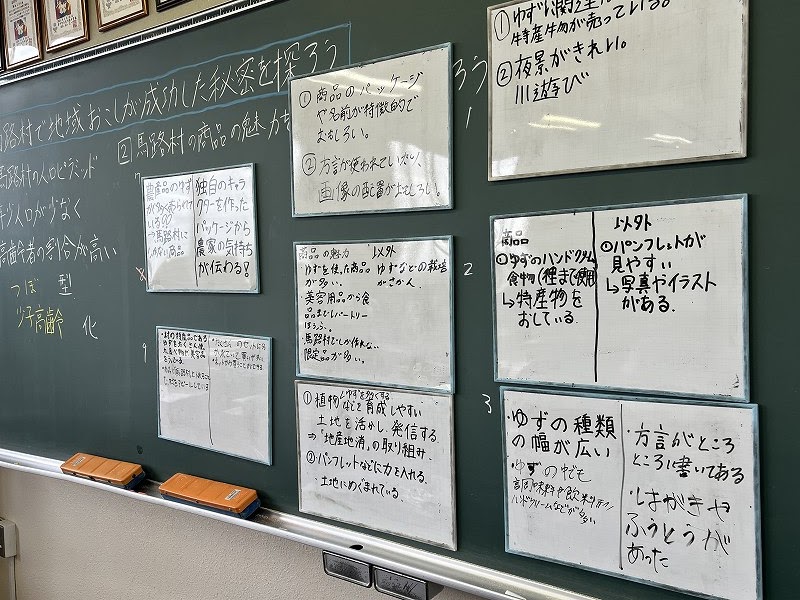 路村で地域おこしが成功した秘密を探ろう
② 馬路村の商品の魅力を
ろう
馬路村の人口ピラミッド
人口が少なく
高齢者の割合が高い
つぼ 型
少子高齢 化
独自のキャラ
クターを作った
パッケージから
農家の気持ち
が伝わる!
① 商品のパッケージ
や名前が特徴的で
おもしろい。
② 方言が使われていたり、
画像の配置がおもしろい。
商品の魅力
・ゆずを使った商品
が多い。
・美容用品から食
品までレパートリー
・馬路村でしか作れない
限定品が多い。
以外
ゆずなどの栽培
がさかん。
① 植物
などを育成しやすい
土地を活かし、発信する
⇒「地産地消」の取り組み
② パンフレットなどに力を入れる。
・土地にめぐまれている。
①
特産物が売っている。
② 夜景がきれい。
川遊び
2
商品
① ゆずのハンドクリーム
食物(種まで使用)
↳特産物を
おしている.
以外
① パンフレットが
見やすい
↳写真やイラスト
がある.
3
・ゆずの種類
の幅が広い
・ゆずの中でも
ハンドクリームなどが多い
・方言がところ
ところに書いてある
・はがきや
ふうとうが
あった